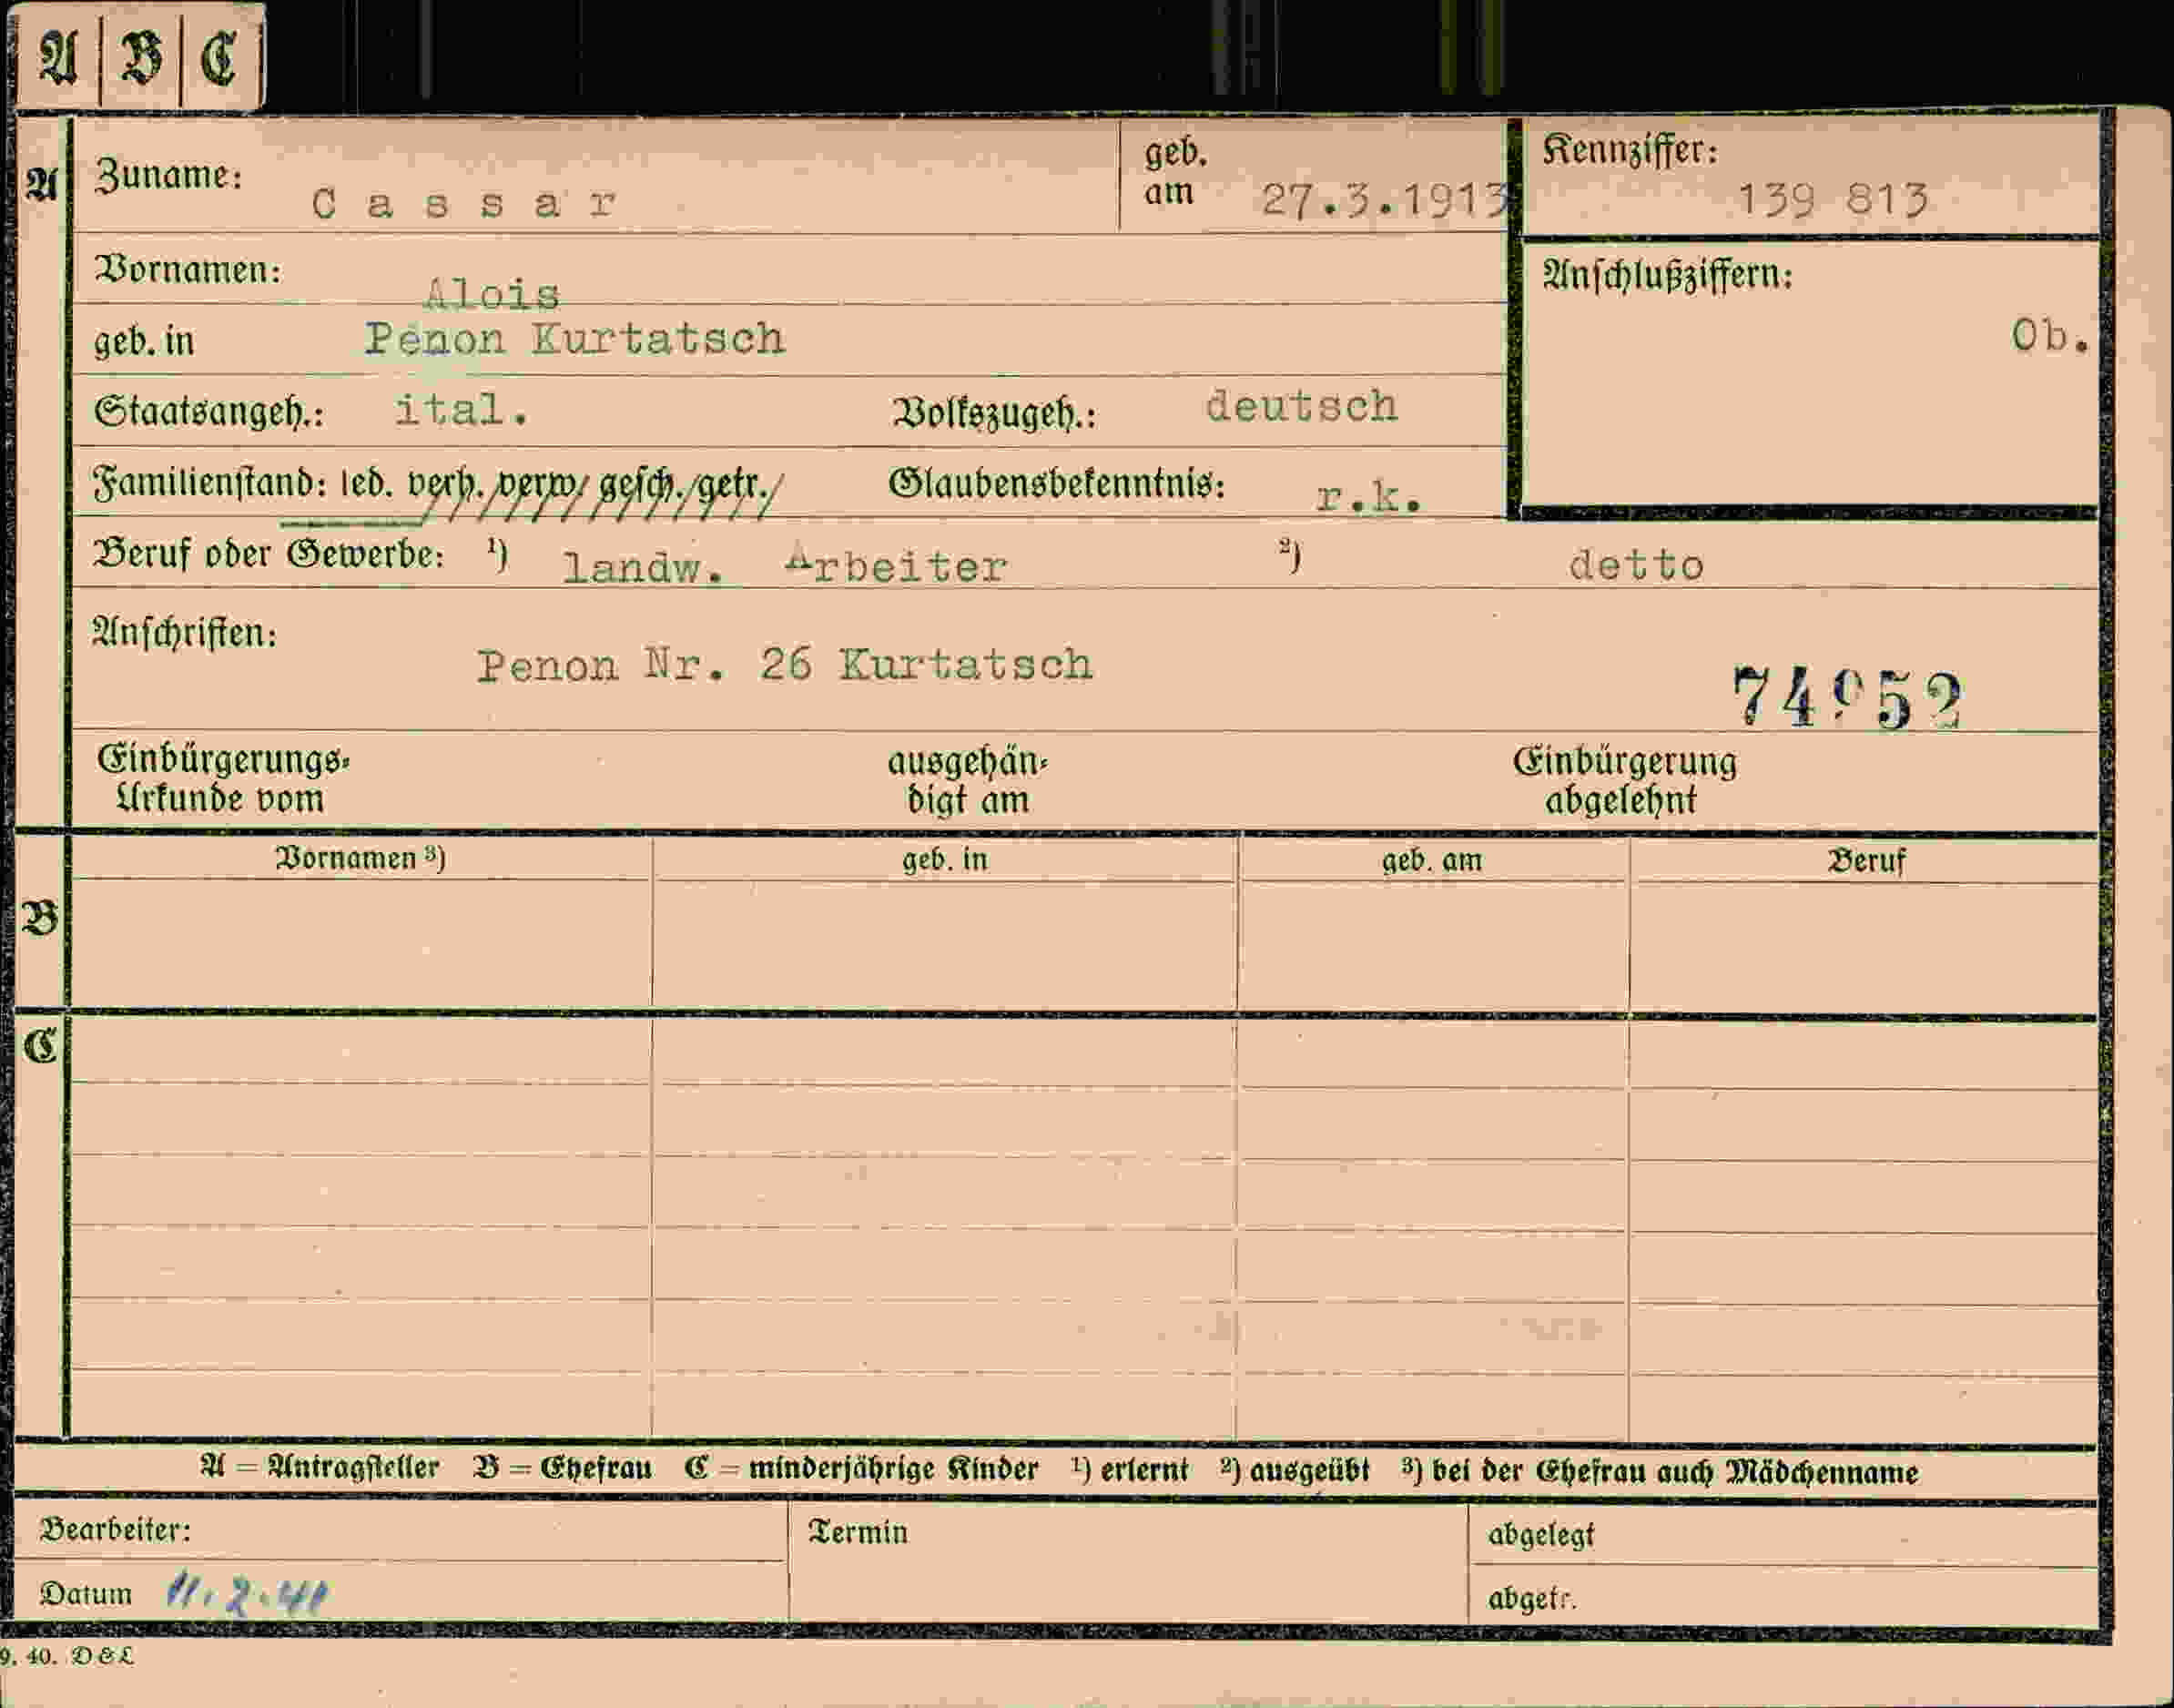 A | B | C
A
Zuname: Cassar
geb. am 27.3.1913
Kennziffer: 139 813
Vornamen: Alois
Anschlußziffern: Ob.
geb. in Penon Kurtatsch
Staatsangeh.: ital. Volkszugeh.: deutsch
Familienstand: led. verh. verw. gesch. getr. Glaubensbekenntnis: r.k.
Beruf oder Gewerbe: 1) landw. Arbeiter 2) detto
Anschriften: Penon Nr. 26 Kurtatsch
Einbürgerungs-
Urkunde vom
ausgehän-
digt am
Einbürgerung
abgelehnt
B
Vornamen 3) geb. in geb. am Beruf
C
A = Antragsteller B = Ehefrau C = minderjährige Kinder 1) erlernt 2) ausgeübt 3) bei der Ehefrau auch Mädchenname
Bearbeiter: Termin abgelegt
Datum 11.2.41 abgetr.
9. 40. D & L